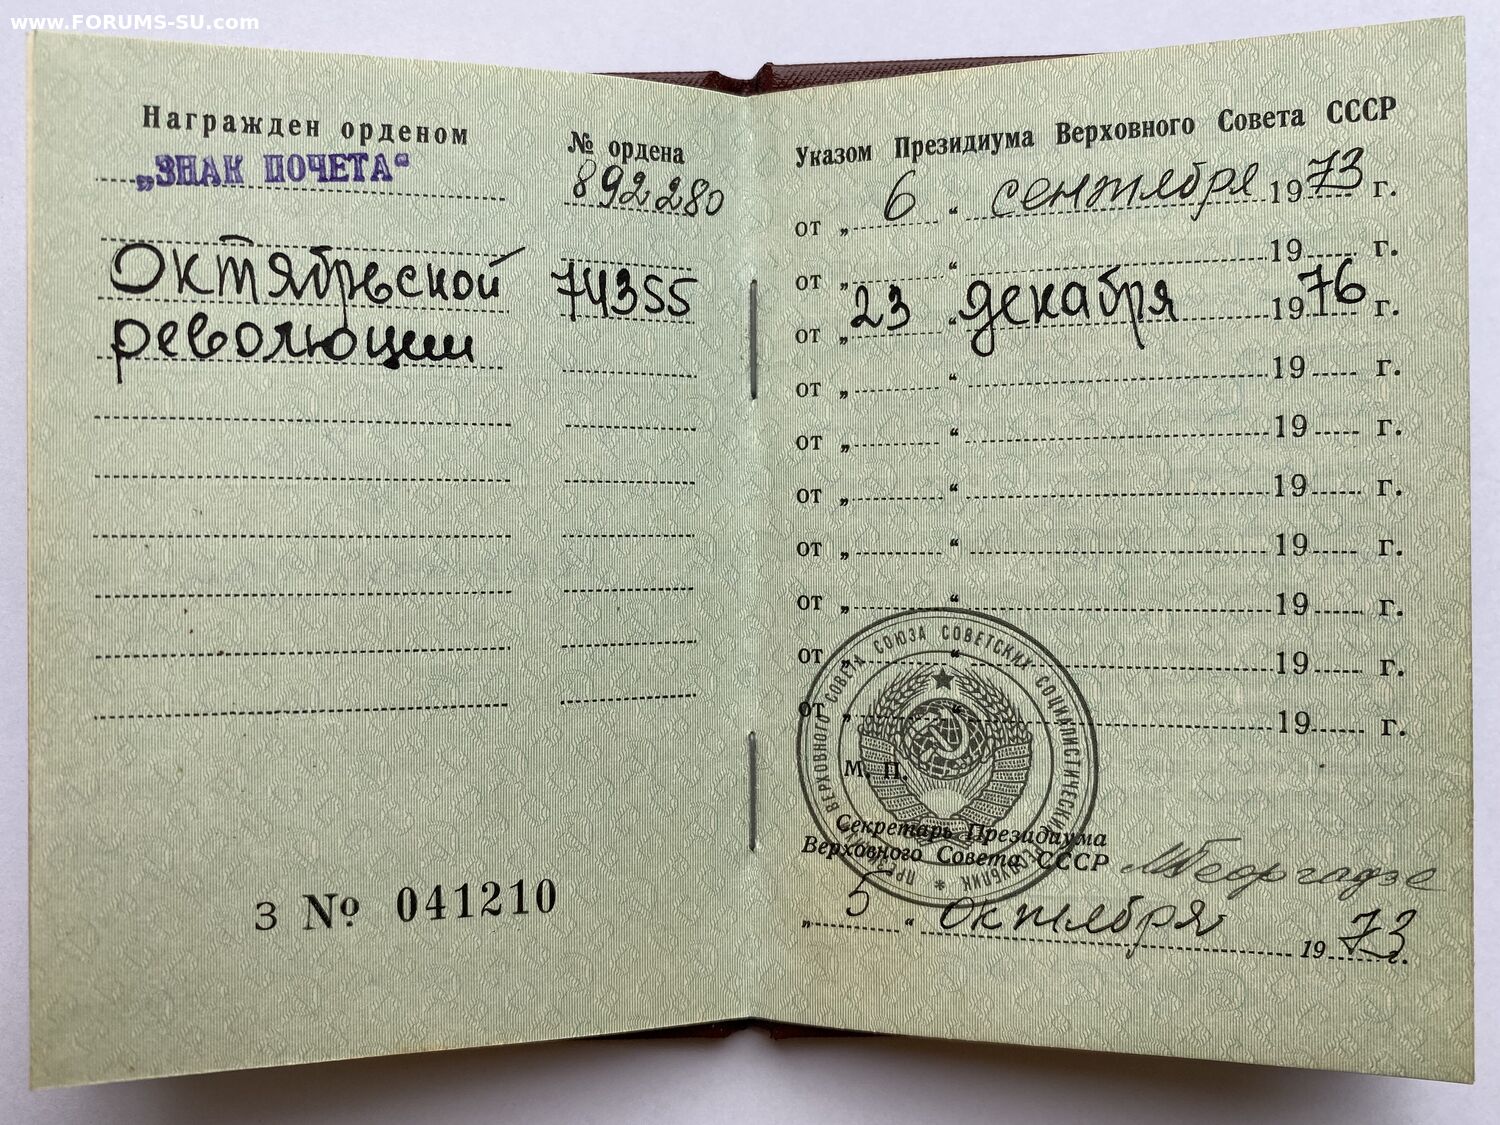 www.FORUMS-SU.com
Награжден орденом
№ ордена
„ЗНАК ПОЧЕТА“
892280
Октябрьской
74355
революции
З № 041210
Указом Президиума Верховного Совета СССР
от „ 6 “ сентября 1973 г.
от „ “ 19 г.
от „ 23 “ декабря 1976 г.
от „ “ 19 г.
от „ “ 19 г.
от „ “ 19 г.
от „ “ 19 г.
от „ “ 19 г.
от „ “ 19 г.
от „ “ 19 г.
М. П.
ПРЕЗИДИУМ ВЕРХОВНОГО СОВЕТА СОЮЗА СОВЕТСКИХ СОЦИАЛИСТИЧЕСКИХ РЕСПУБЛИК *
Секретарь Президиума
Верховного Совета СССР МГеоргадзе
„ 5 “ октября 1973 г.